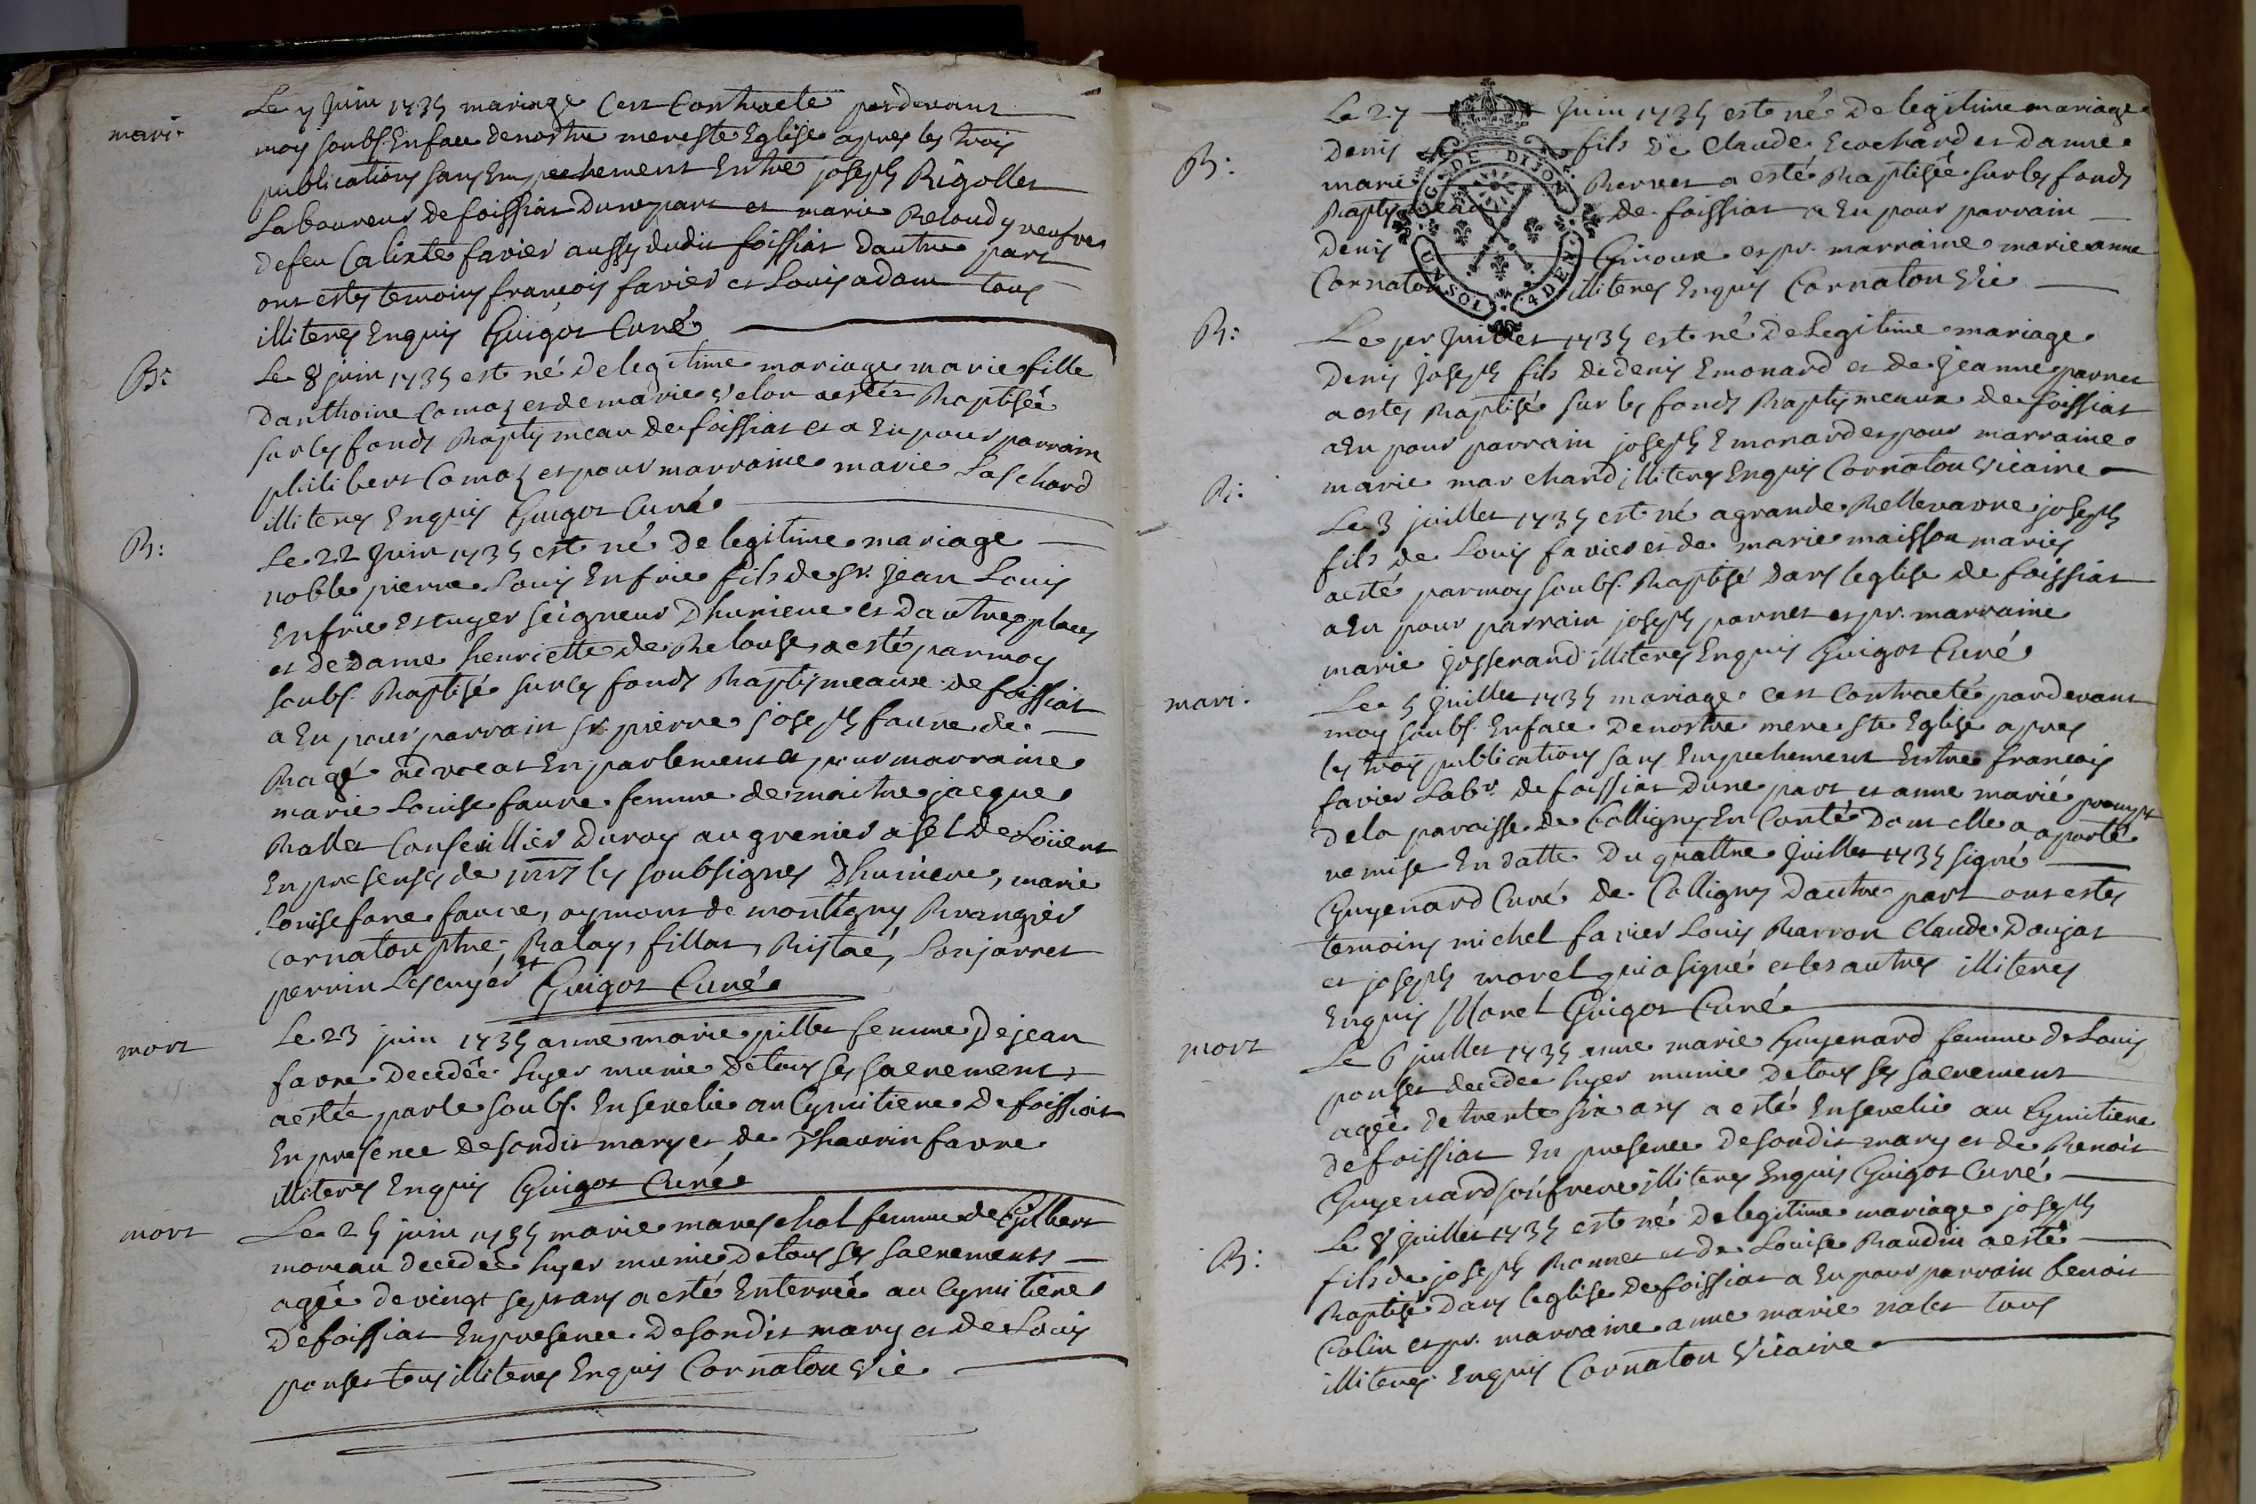 mari.
Le 7 Juin 1735 mariage cest Contracté pardevant
moy soubs. En face denostre mere ste Eglise apres les trois
publications sans Empechement Entre joseph Rigollet
Laboureur de foissiat Dune part et marie Beloudy veufve
defeu Calixte favier aussy dudit foissiat dautre part
ont estes temoins françois favier et Louis adam tous
illiteres Enquis Guigot Curé
B:
Le 8 juin 1735 est né De legitime mariage marie fille
Danthoine Comaz et de marie Velon aestée Baptisée
sur les fonds Baptismeau de foissiat et a Eu pour parrain
philibert Comaz et pour marraine marie Laschard
illiteres Enquis Guigot Curé
B:
Le 22 Juin 1735 est né De legitime mariage
noble pierre Louis Enfrie fils de Sr. Jean Louis
Enfrie Escuyer Seigneur Dhuriene et Dautres places
et De Dame henriette de Belouse a esté par moy
soubs. Baptisé sur les fonds Baptismeaux de foissiat
a Eu pour parrain Sr. pierre joseph faure de
Bagé advocat En parlement et pour marraine
marie Louise faure femme de maitre jacque
Ballet Conseillier Du roy au grenier a sel de
En presenses de les soubsignes Dhuriene, marie
Louise faure, aymont de montigny Brangier
Cornaton ptre, Balay, fillat, Bistac, Lonjarret
perrin Lescuyer et Guigot Curé
mort
Le 23 juin 1735 anne marie pillet femme De jean
favre Decedée hyer munie De tous ses sacrements
aestée par le soubs. Ensevelie au Cymitiere De foissiat
En presence De sondit mary et de favre
illiteres Enquis Guigot Curé
mort
Le 25 juin 1735 marie mareschal femme de Gilbert
moreau decedée hyer munie De tous ses sacrements
agée de vingt sept ans a esté Enterrée au Cymitiere
De foissiat En presence De sondit mary et de Louis
ponset tous illiteres Enquis Cornaton Vic
B:
Le 27 Juin 1735 est né De legitime mariage
Denis fils De Claude Ecochard et Danne
marie Bernet a esté Baptisée sur les fonds
Baptismeau de foissiat a Eu pour parrain
Denis Giroux et pr. marraine marie anne
Cornaton illiteres Enquis Cornaton Vic
G. DE DIJON
UN SOL 4 DEN.
B:
Le per Juillet 1735 est né De Legitime mariage
Denis Joseph fils de denis Emonard et de Jeanne parnet
a estes Baptisé sur les fonds Baptismeaux de foissiat
a Eu pour parrain joseph Emonard et pour marraine
marie marchand illiteres Enquis Cornaton Vicaire
B:
Le 3 juillet 1735 est né a grande Bellevavre joseph
fils de Louis favier et de marie maisson mariés
a esté par moy soubs. Baptisé Dans leglise de foissiat
a Eu pour parrain joseph parnet et pr. marraine
marie josserand illiteres Enquis Guigot Curé
mari.
Le 5 juillet 1735 mariage cest Contracté pardevant
moy soubs. En face Denostre mere ste Eglise apres
les trois publications sans Empechement Entre francois
favier Labr. de foissiat Dune part et anne marie
de la paroisse de Colligny En Conté Dont elle a aporté
remise En datte Du quattre Juillet 1735 signé
Guyenard Curé de Colligny Dautre part ont estes
temoins michel favier Louis Barron Claude Doujat
et joseph morel qui a signé et les autres illiteres
Enquis Morel Guigot Curé
mort
Le 6 juillet 1735 anne marie Guyenard femme De Louis
ponset decedee hyer munie De tous ses sacrement
agée De trente six ans a esté Ensevelie au Cymitiere
De foissiat En presence De sondit mary et de Benoit
Guyenard son frere illiteres Enquis Guigot Curé
B:
Le 8 Juillet 1735 est né De legitime mariage joseph
fils de joseph Bonnet et de Louise Baudin a esté
Baptisé Dans leglise de foissiat a Eu pour parrain benoit
Colin et pr. marraine anne marie nalet tous
illiteres Enquis Cornaton Vicaire